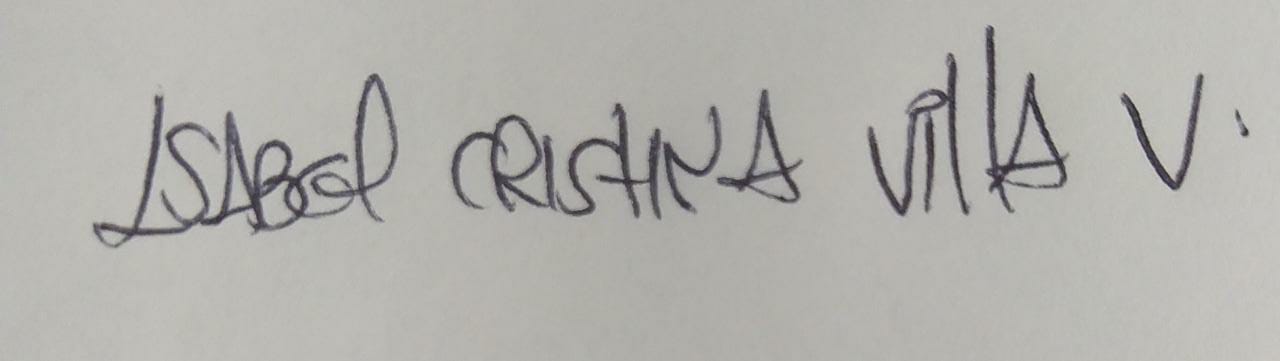 ISABel CRISTINA VillA V.